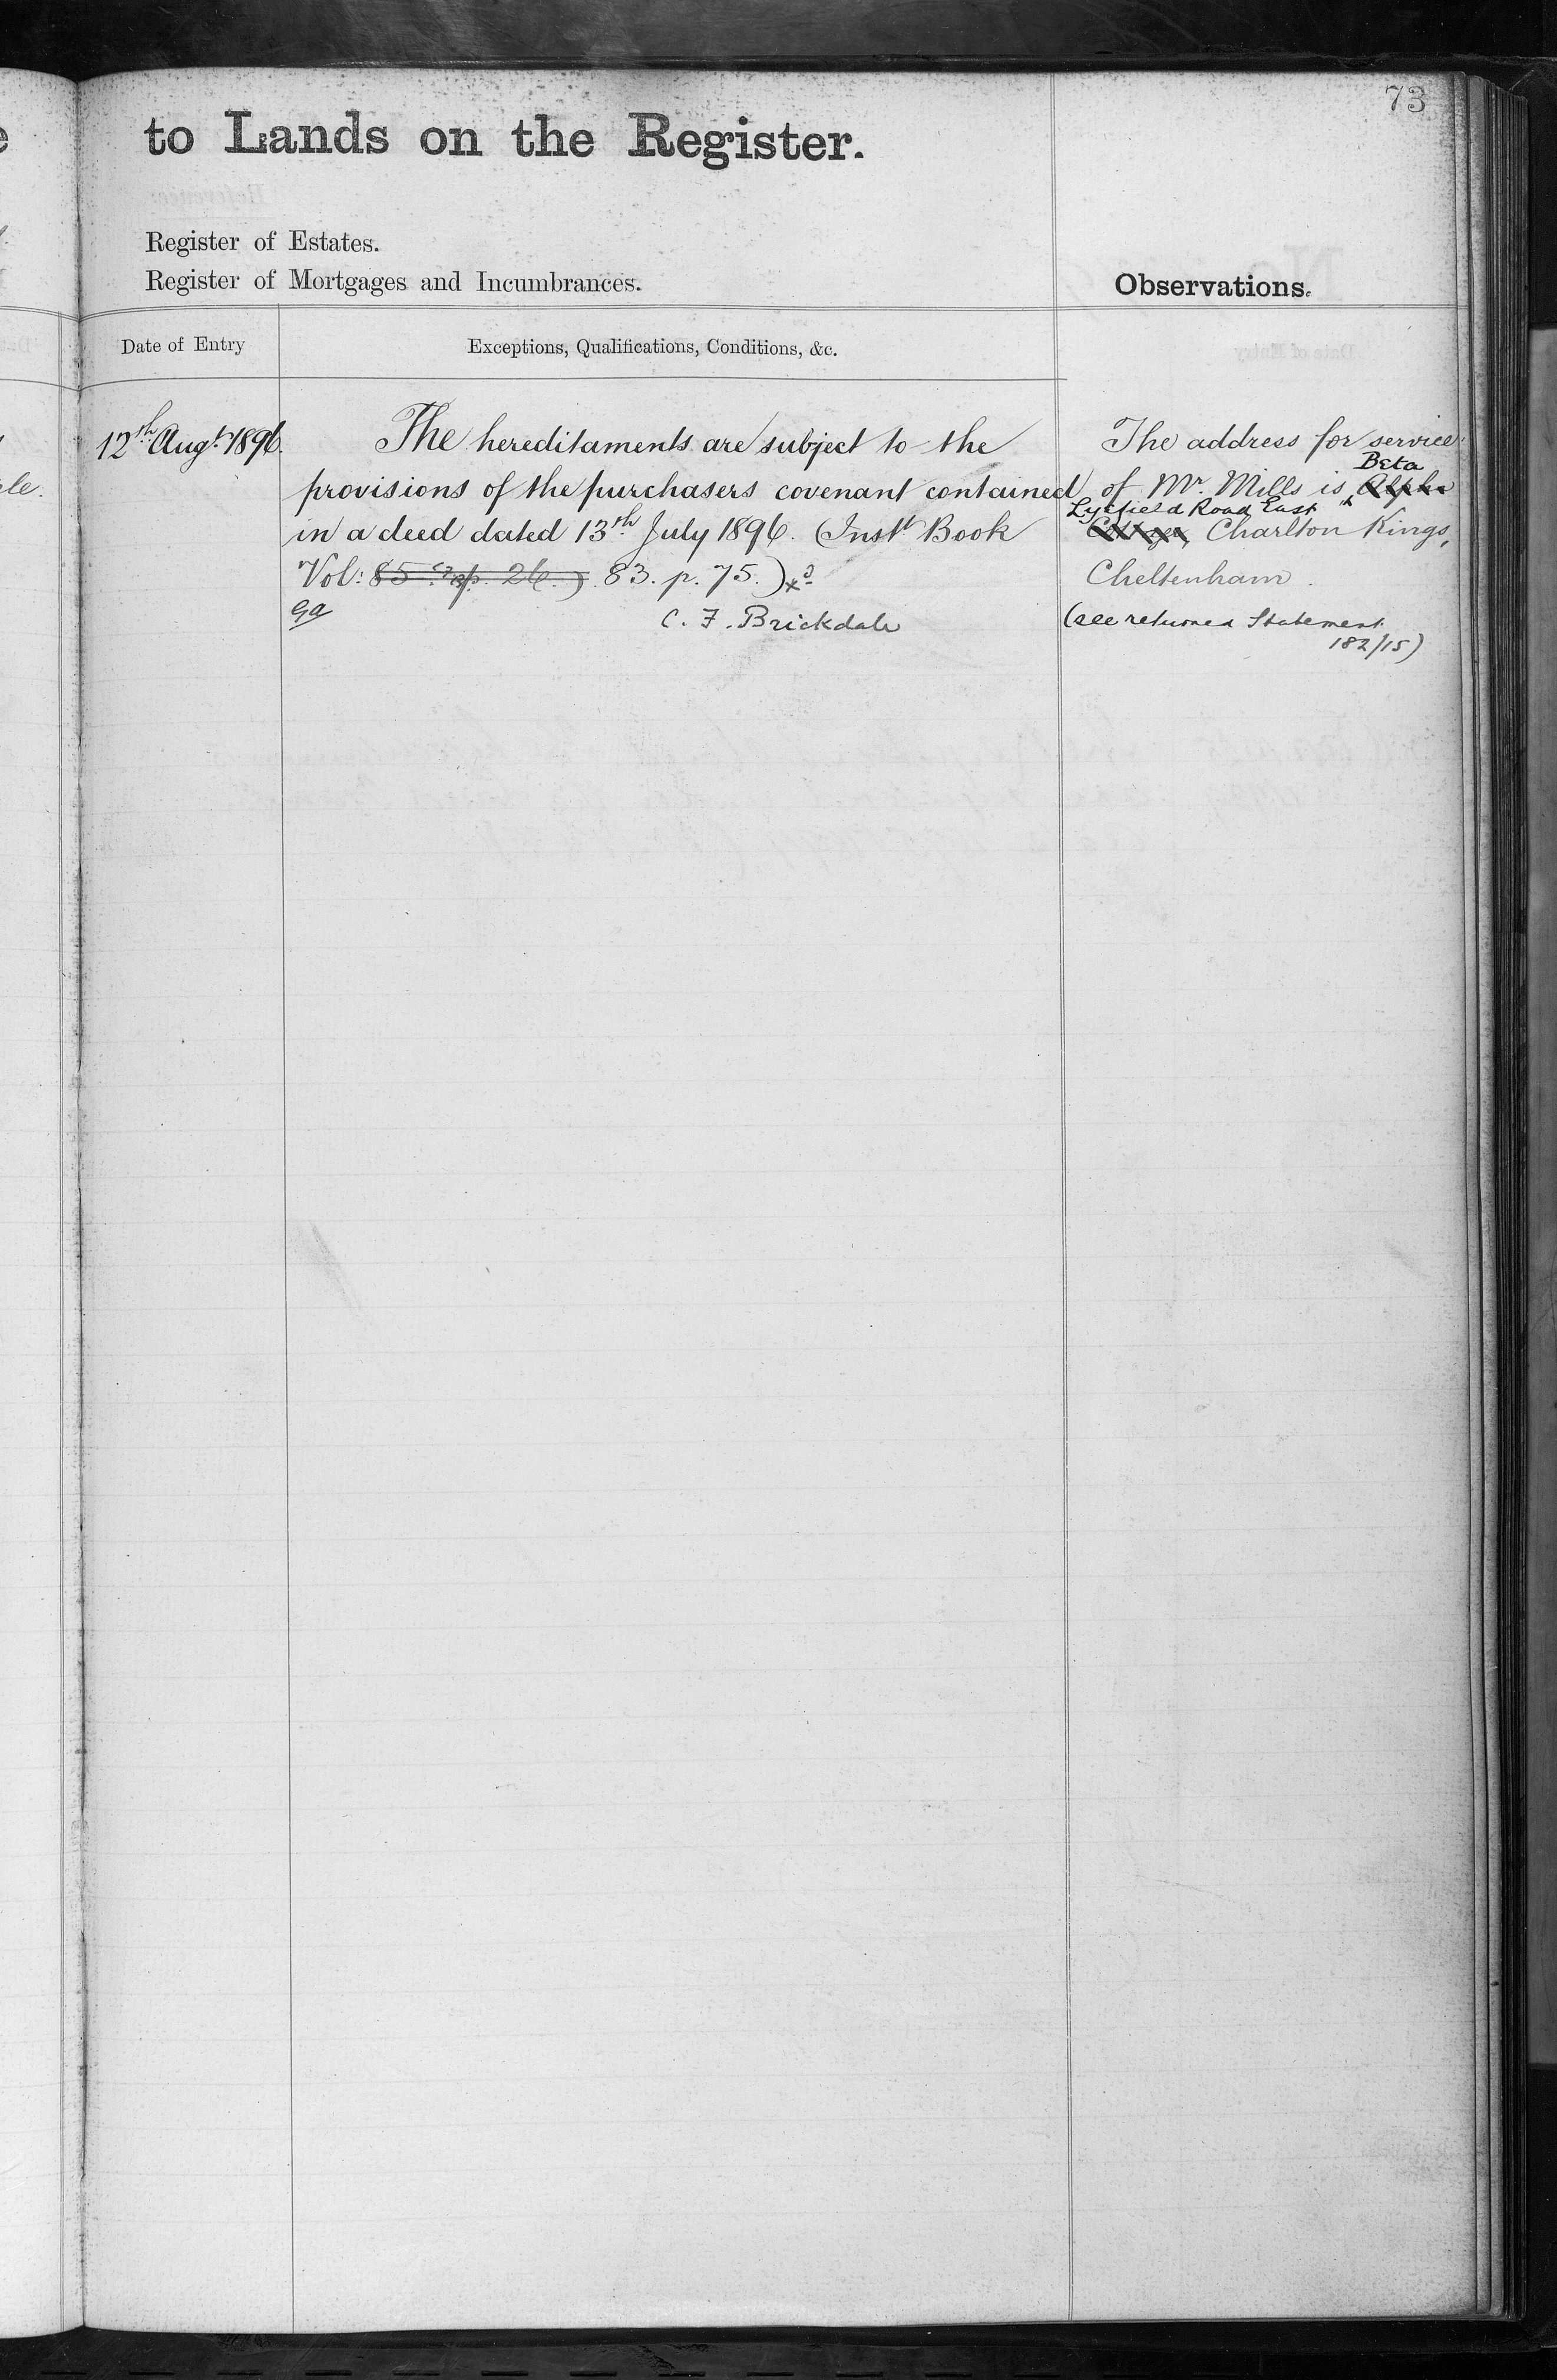 73
to Lands on the Register.
Register of Estates.
Register of Mortgages and Incumbrances.
Observations.
Date of Entry
Exceptions, Qualifications, Conditions, &c.
12th Augt. 1896.
The hereditaments are subject to the
provisions of the purchasers covenant contained
in a deed dated 13th July 1896. (Instt Book
Vol: 85 p. 26.) 83. p. 75.)
C. F. Brickdale
The address for service
Beta
of Mr. Mills is Alpha
Lyefield Road East
Cottage, Charlton Kings,
Cheltenham.
(see returned Statement
182/15)